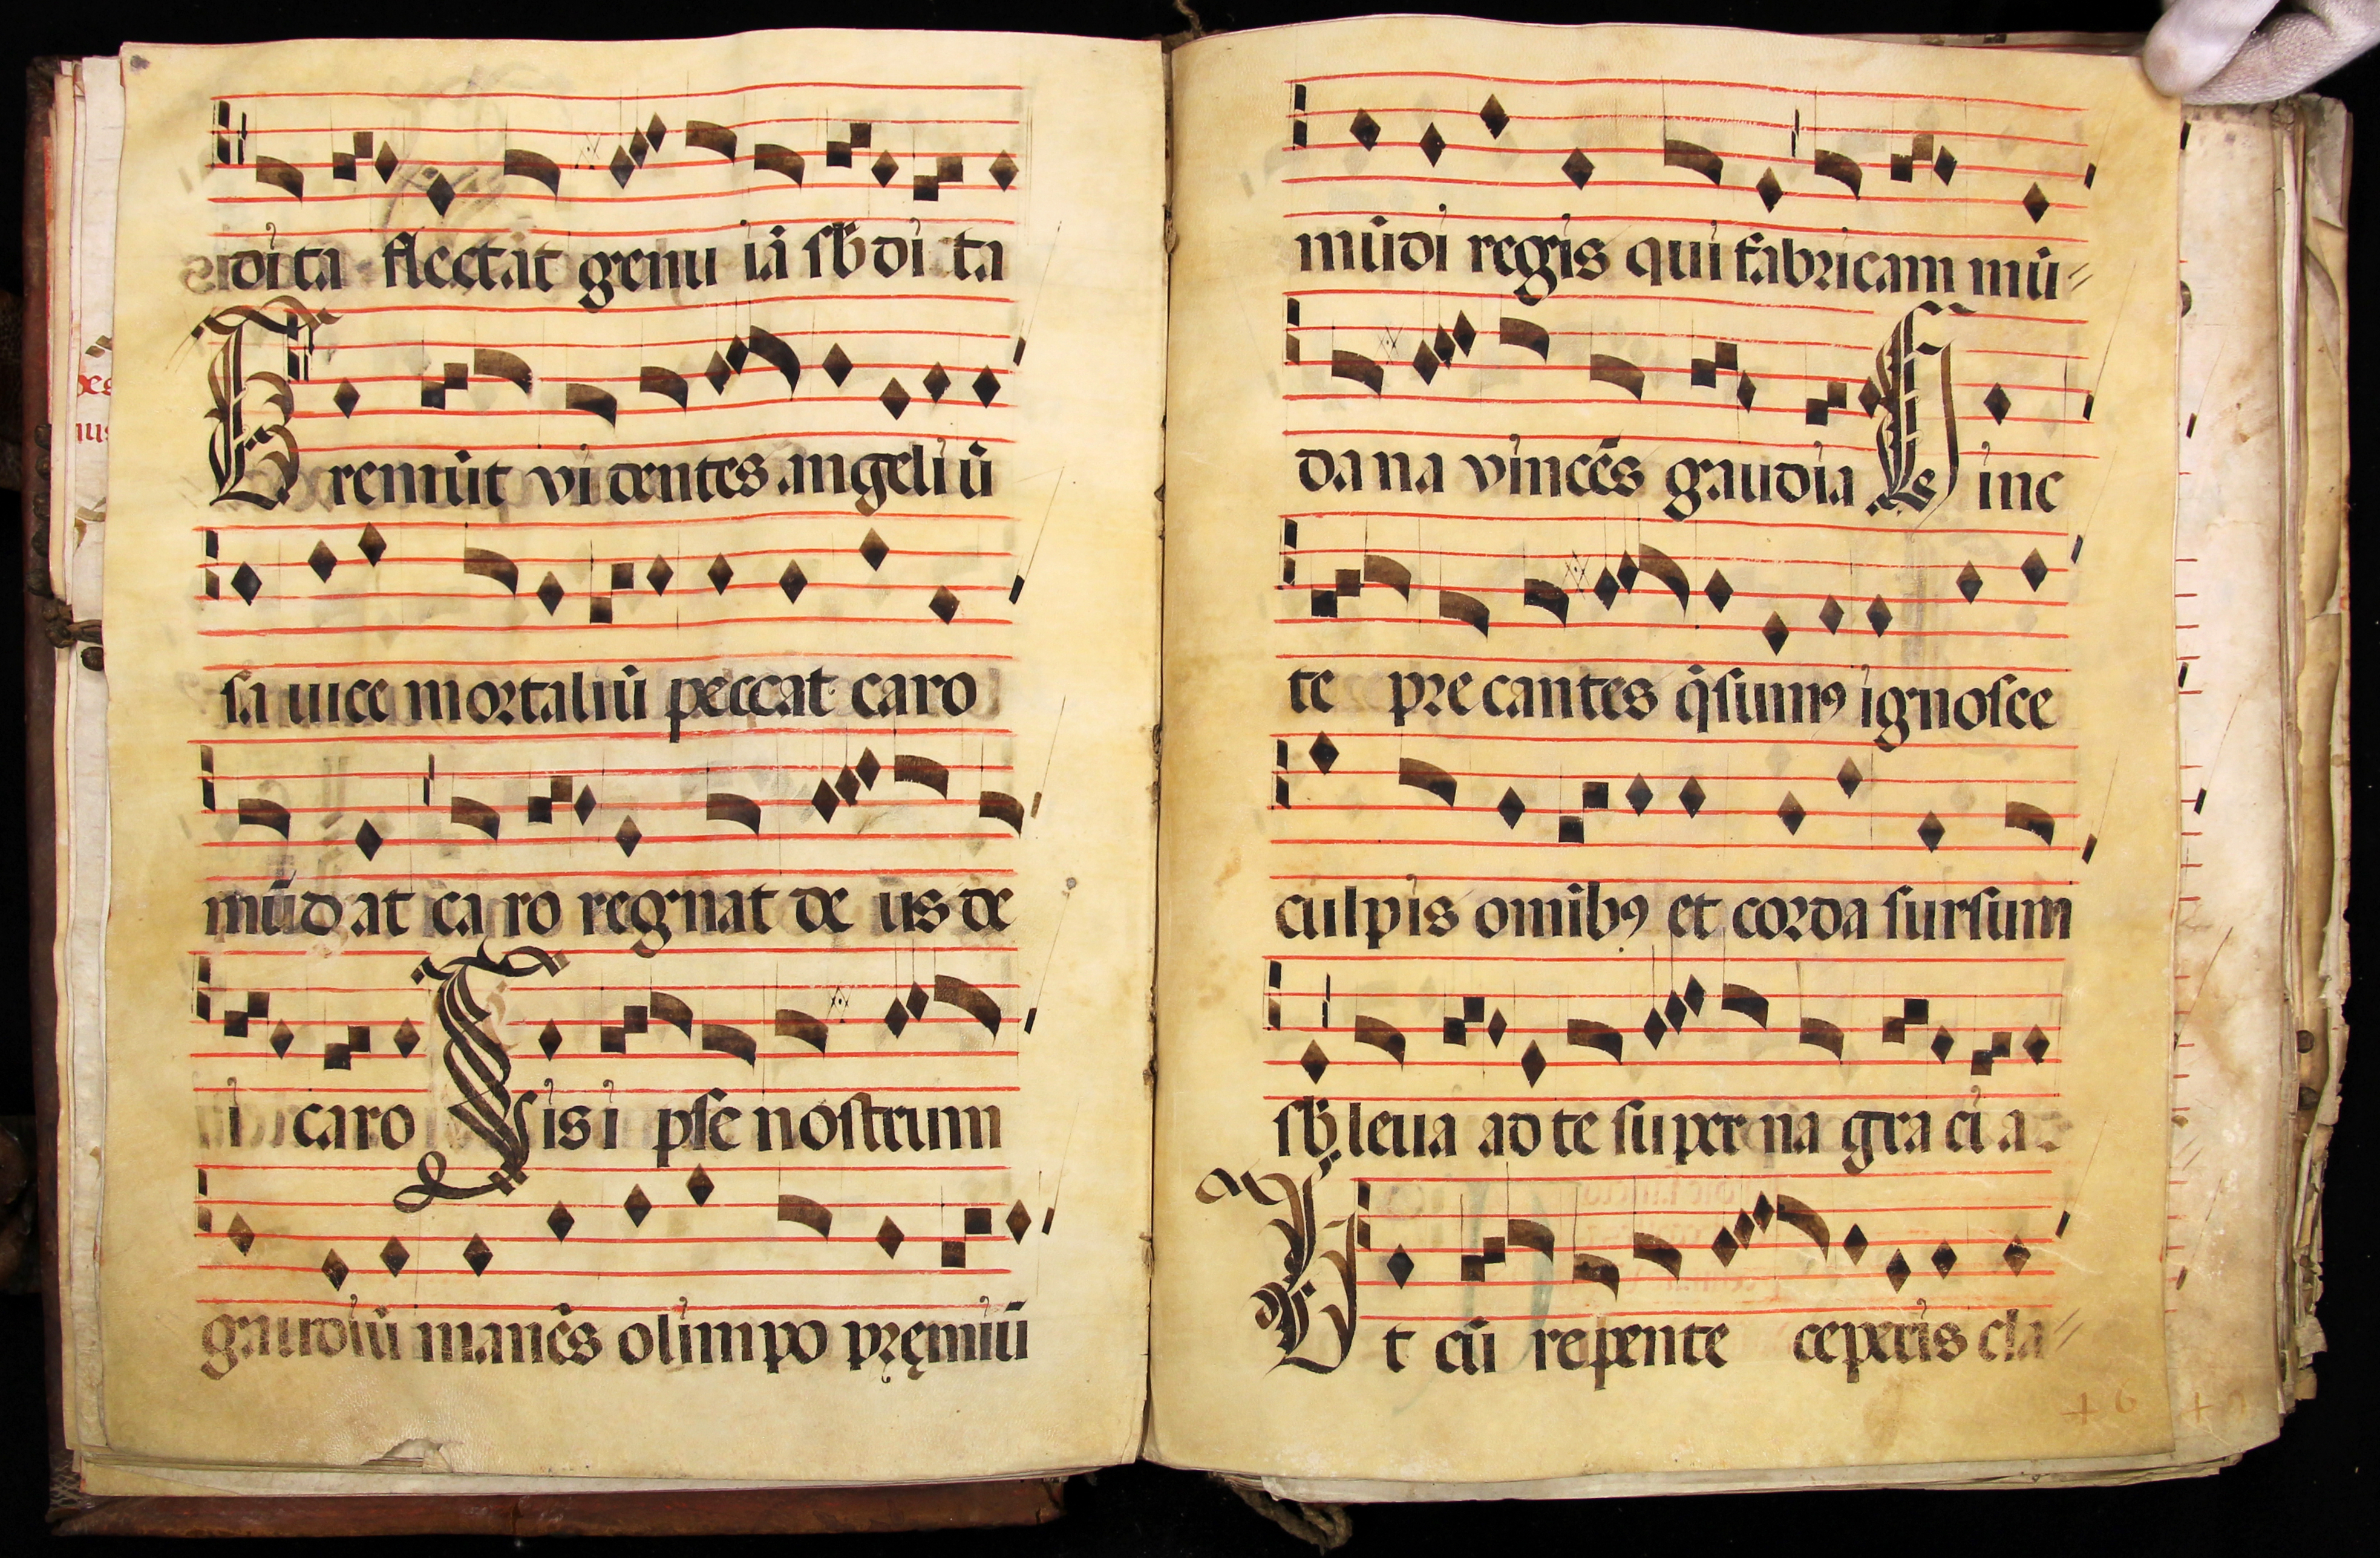 dita flectāt genu iā sb̄dita
Tremūt videntes angeli v̄
sa uice mortaliū peccat caro
mūdat caro regnat deus de
i caro Sis ipse nostrum
gaudiū manēs olimpo pręmiū
mūdi regis qui fabricam mū=
dana vincēs gaudia Hinc
te precantes q̄sumꝰ ignosce
culpis omībꝰ et corda sursum
sb̄leua ad te superna gracia
Ut cū repente ceperis cla=
+ 6